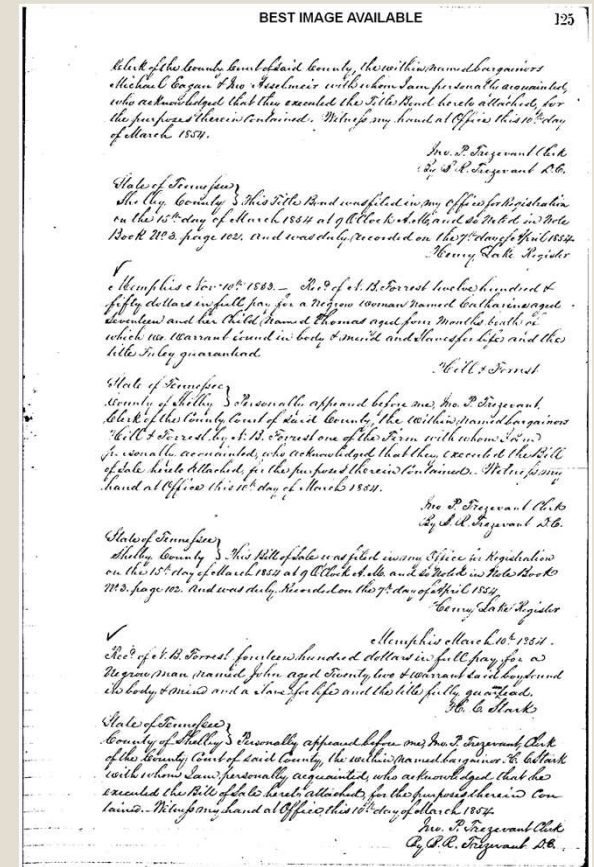 BEST IMAGE AVAILABLE
125
Clerk of the County Court of said County, the within named bargainors
Michael Eagan & Jno Asselmeir with whom I am personally acquainted,
who acknowledged that they executed the Title Bond hereto attached, for
the purposes therein contained. Witness my hand at Office this 10th day
of March 1854.
Jno. P. Trezevant Clerk
By S. R. Trezevant D.C.
State of Tennessee
Shelby County } This Title Bond was filed in my Office for Registration
on the 15th day of March 1854 at 9 O'Clock A.M. and so Noted in Note
Book No 3. page 102. and was duly recorded on the 7th day of April 1854.
Henry Lake Register
Memphis Nov 10th 1853. Recd of N. B. Forrest twelve hundred &
fifty dollars in full pay for a Negro woman named Catharine aged
seventeen and her Child named Thomas aged four months both of
which we Warrant sound in body & mind and Slaves for life and the
title guaranteed
Hill & Forrest
State of Tennessee
County of Shelby } Personally appeared before me, Jno. P. Trezevant,
Clerk of the County Court of said County, the within named bargainors
Hill & Forrest, by N. B. Forrest one of the Firm with whom I am
personally acquainted, who acknowledged that they executed the Bill
of Sale hereto attached, for the purposes therein Contained. Witness my
hand at Office this 10th day of March 1854.
Jno P. Trezevant Clerk
By S. R. Trezevant D.C.
State of Tennessee
Shelby County } This Bill of Sale was filed in my Office for Registration
on the 15th day of March 1854 at 9 O'Clock A.M. and so Noted in Note Book
No 3. page 102. and was duly Recorded on the 7th day of April 1854.
Henry Lake Register
Memphis March 10th 1854.
Recd of N. B. Forrest fourteen hundred dollars in full pay for a
Negro man named John aged Twenty two & warrant said boy sound
in body & mind and a Slave for life and the title fully
H. C. Stark
State of Tennessee
County of Shelby } Personally appeared before me, Jno. P. Trezevant, Clerk
of the County Court of said County, the within named bargainor H. C. Stark
with whom I am personally acquainted, who acknowledged that he
executed the Bill of Sale hereto attached, for the purposes therein Con
tained. Witness my hand at Office, this 10th day of March 1854
Jno. P. Trezevant Clerk
By S. R. Trezevant D.C.